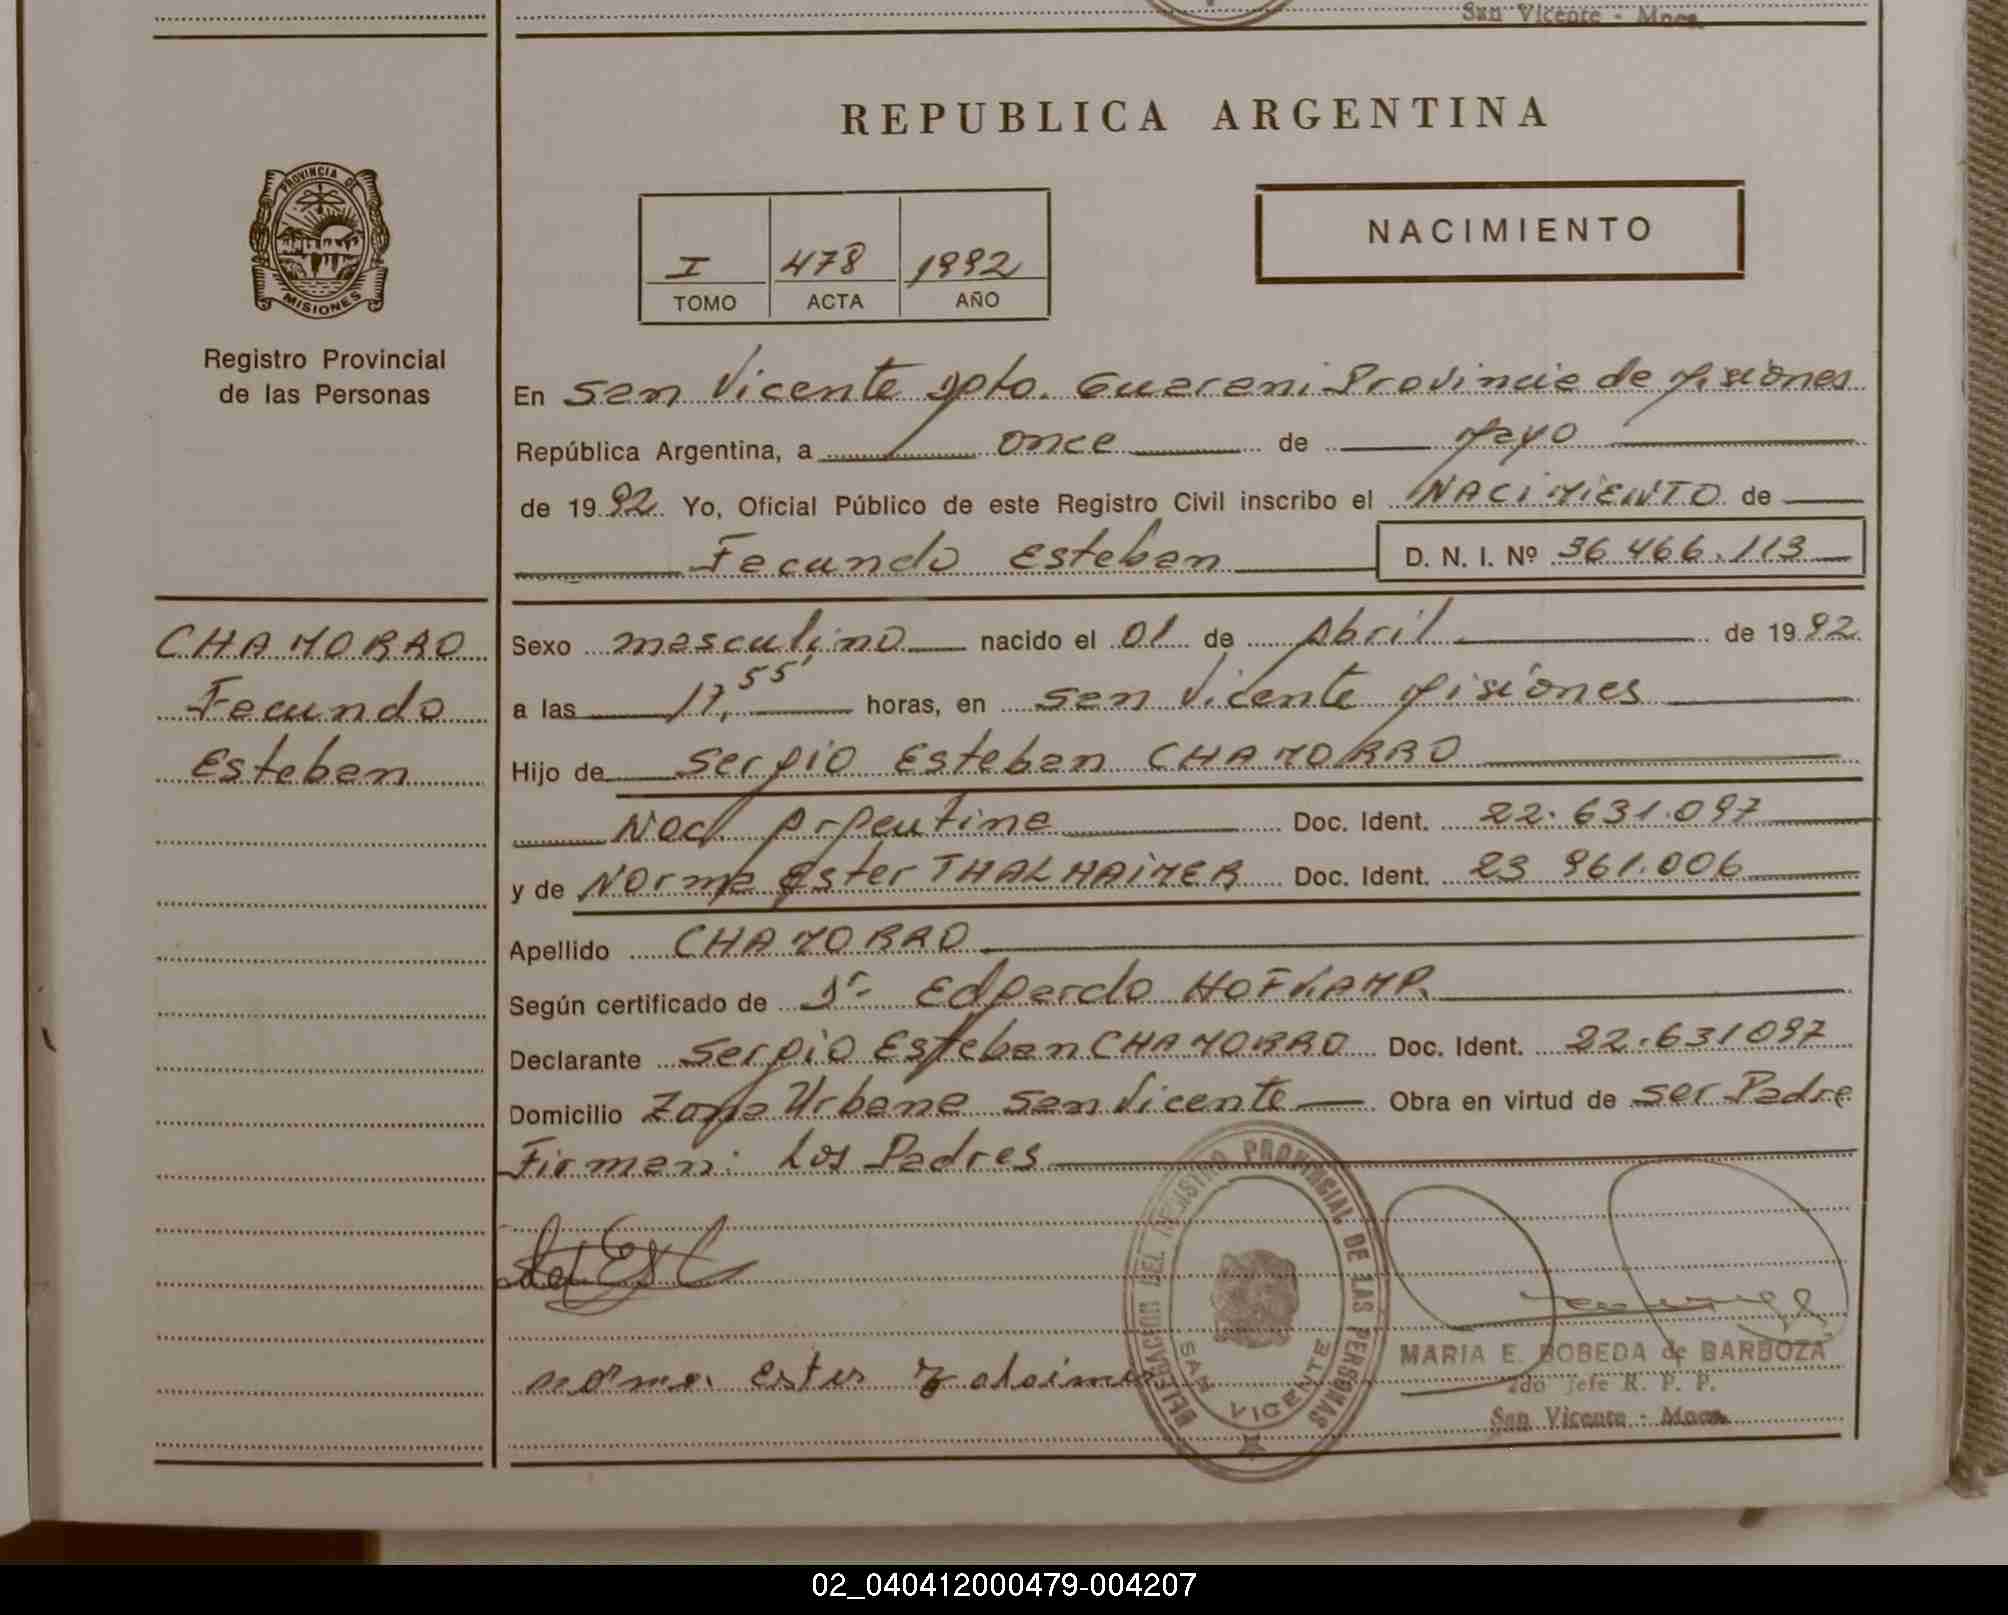 San Vicente - Mnes.
REPUBLICA ARGENTINA
PROVINCIA DE
MISIONES
Registro Provincial
de las Personas
I 478 1992
TOMO ACTA AÑO
NACIMIENTO
En San Vicente Dpto. Guarani Provincia de Misiones
República Argentina, a once de Mayo
de 1992 Yo, Oficial Público de este Registro Civil inscribo el NACIMIENTO de
Facundo Esteban D. N. I. Nº 36.466.113
CHAMORRO
Facundo
Esteban
Sexo masculino nacido el 01 de Abril de 1992
a las 17,55' horas, en San Vicente Misiones
Hijo de Sergio Esteban CHAMORRO
Nac. Argentina Doc. Ident. 22.631.097
y de Norma Ester THALHAIMER Doc. Ident. 23 961.006
Apellido CHAMORRO
Según certificado de Dr. Edgardo HOFKAMP
Declarante Sergio Esteban CHAMORRO Doc. Ident. 22.631097
Domicilio Zona Urbana San Vicente Obra en virtud de ser Padre
Firman: Los Padres
DELEGACION DEL REGISTRO PROVINCIAL DE LAS PERSONAS
SAN VICENTE
norma Ester
MARIA E. BOBEDA de BARBOZA
2do Jefe R. P. P.
San Vicente - Mnes.
02_040412000479-004207